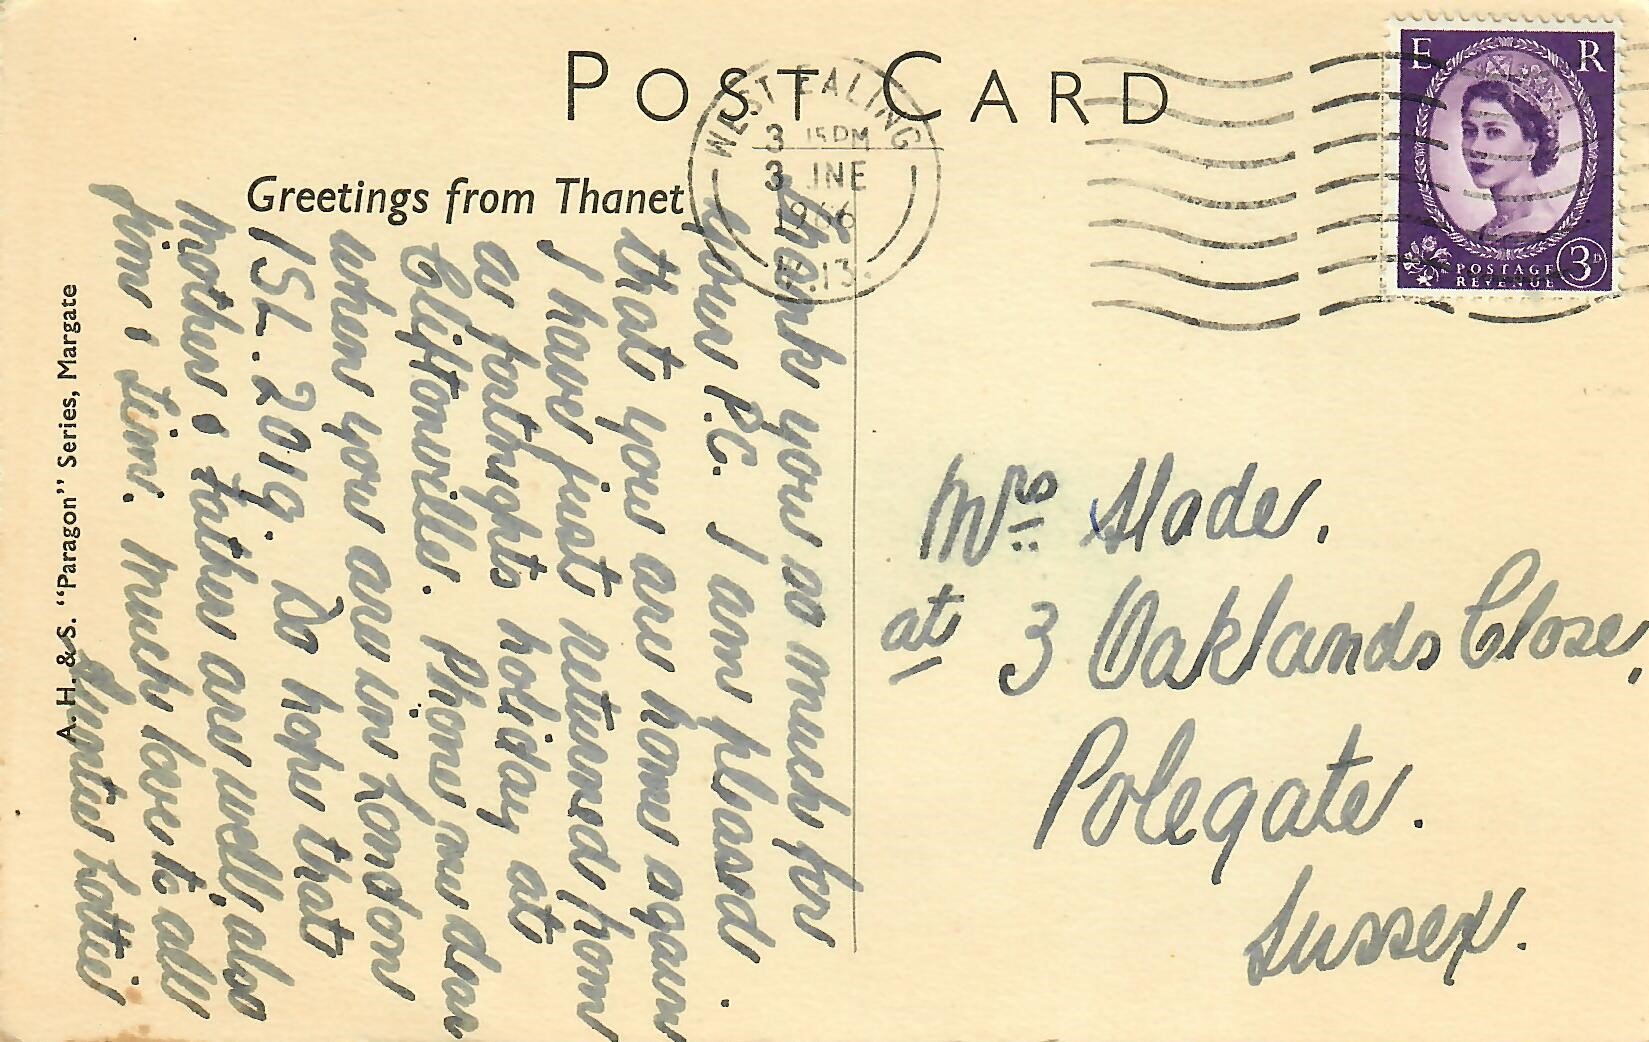 POST CARD
Greetings from Thanet
WEST EALING
3 15 PM
3 JNE
1966
W.13.
E R
POSTAGE
REVENUE
3D
A. H. & S. "Paragon" Series, Margate
Thank you so much for
your P.C. I am pleased
that you are home again
I have just returned from
a fortnights holiday at
Cliftonville. Phone me dear
when you are in London
ISL. 2019. Do hope that
mother & father are well, also
Jim & Jim. Much love to all
Auntie Lottie
Mrs Slade,
at 3 Oaklands Close,
Polegate.
Sussex.